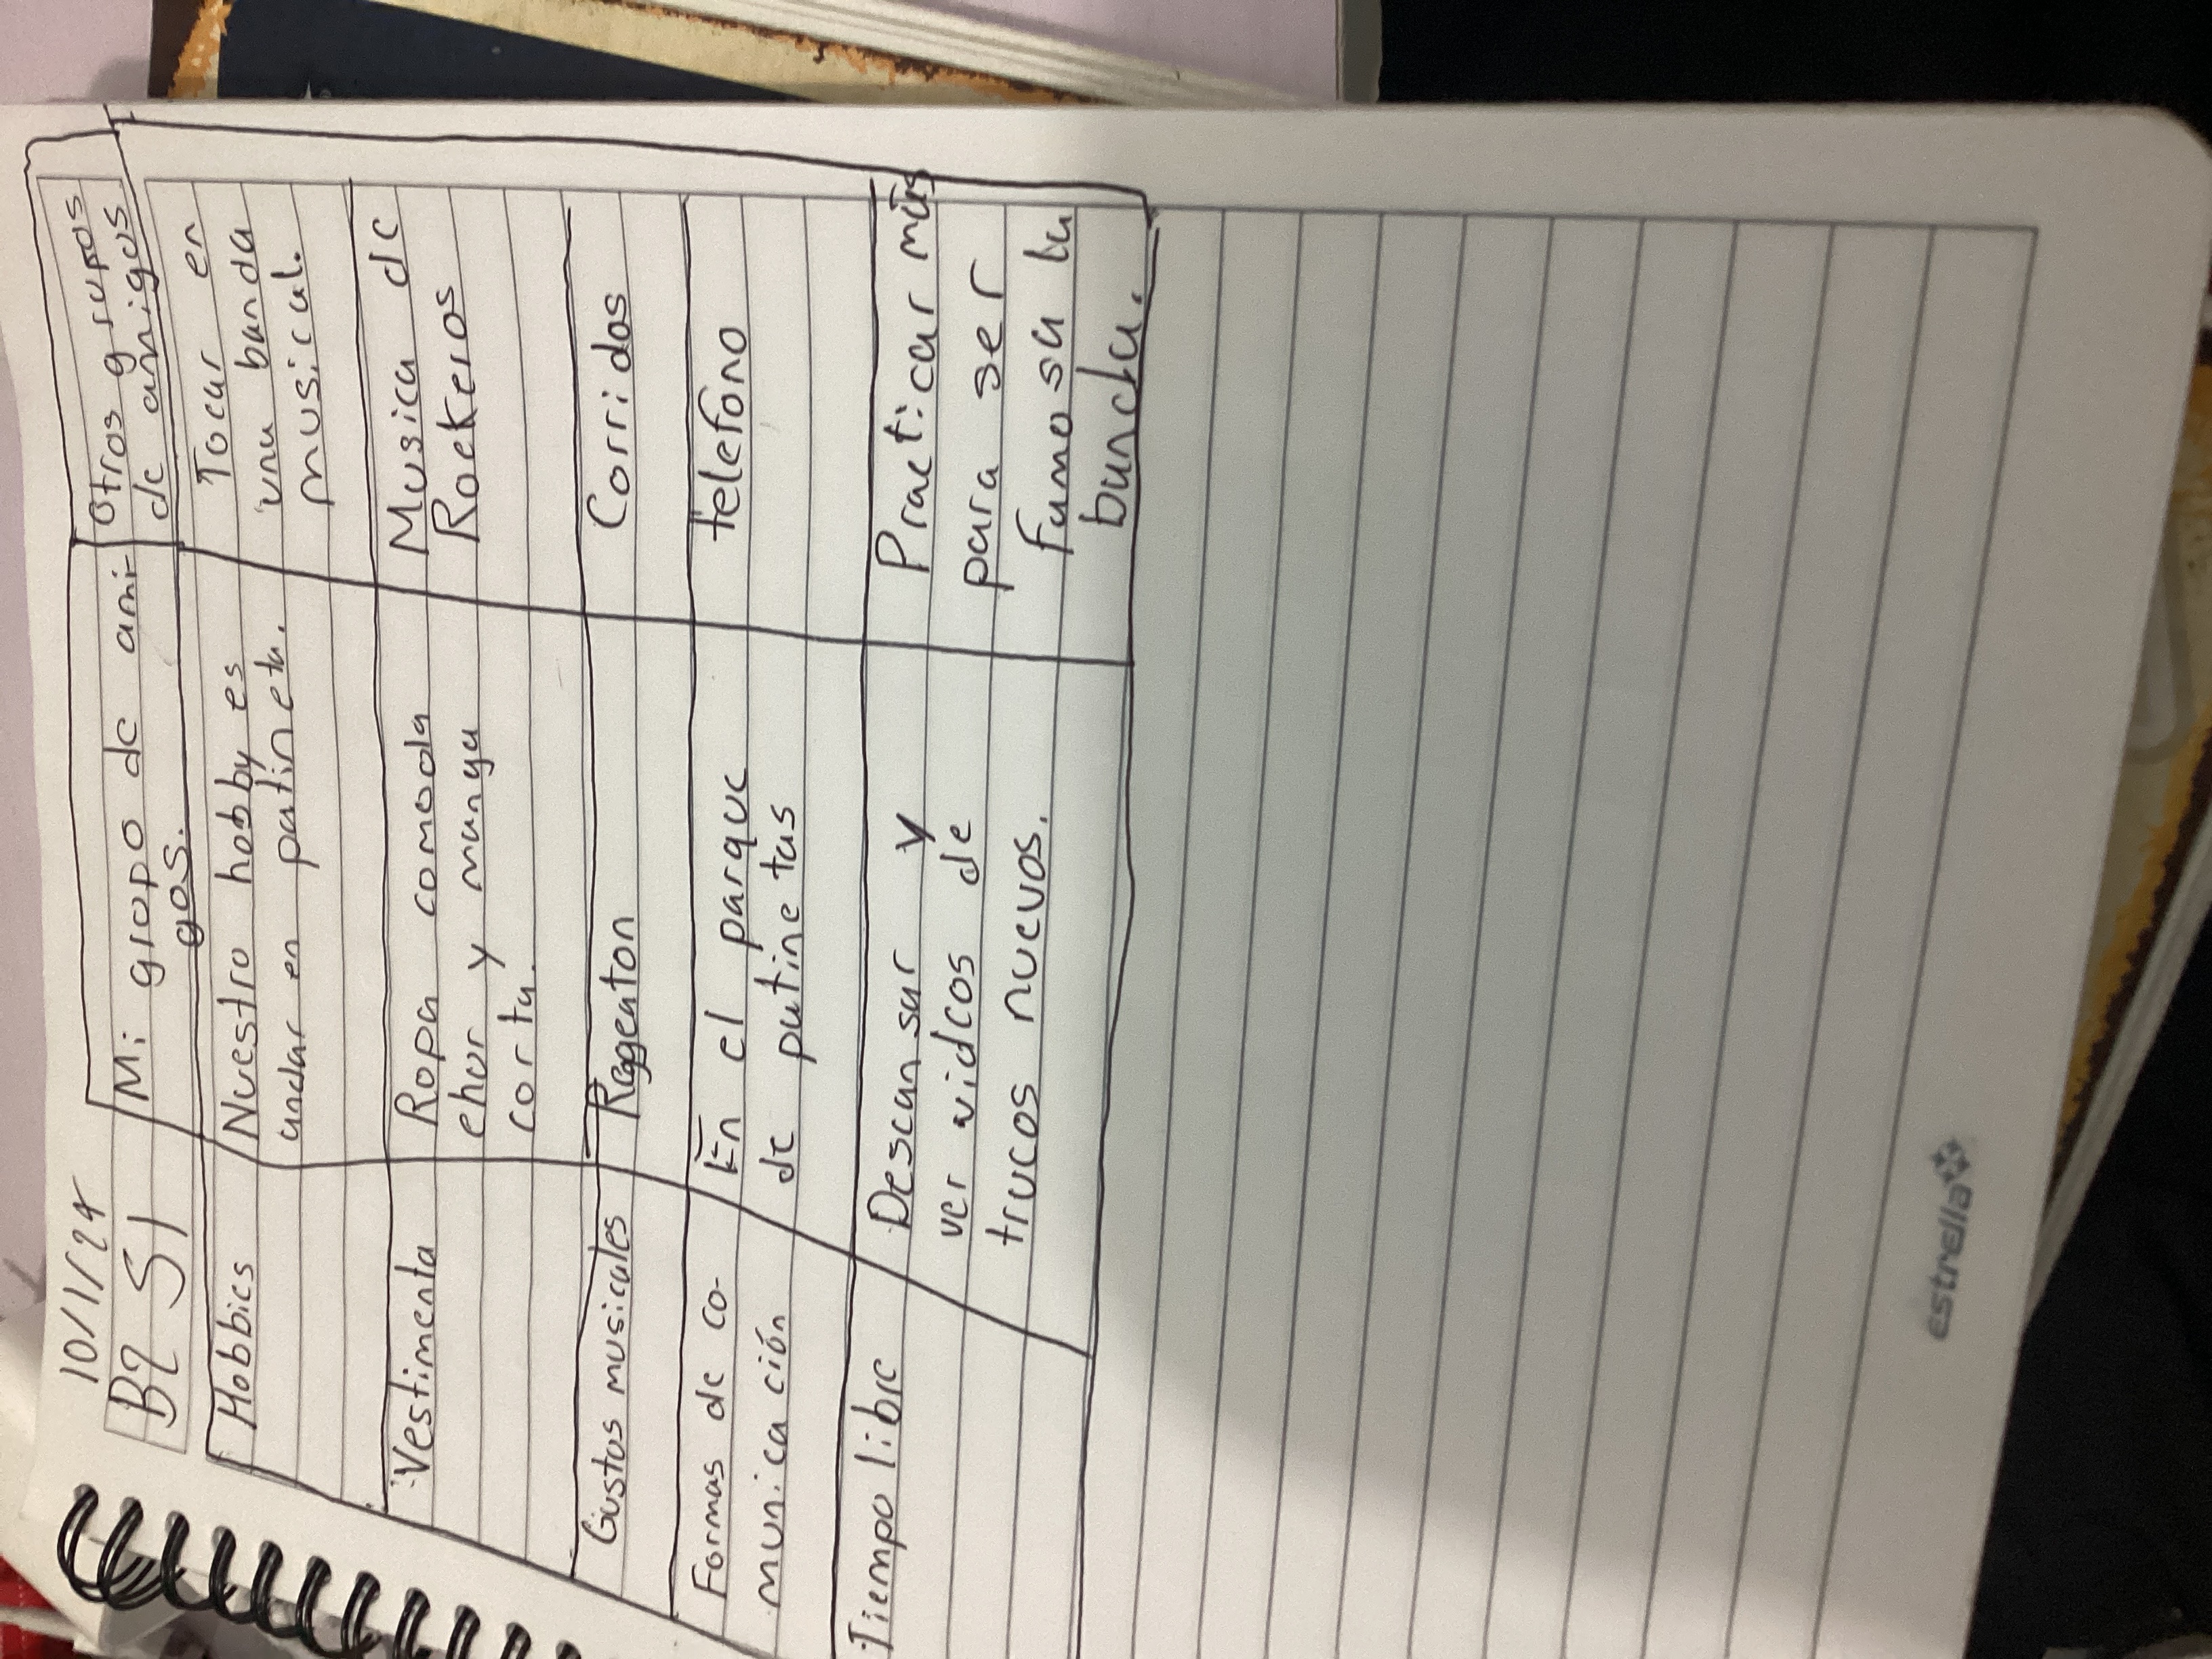 10/1/24
B2 S1
Mi grupo de ami-
gos.
Otros grupos
de amigos
Hobbies
Nuestro hobby es
andar en patineta.
Tocar en
una banda
musical.
Vestimenta
Ropa comoda
chor y manga
corta.
Musica de
Rockeros
Gustos musicales
Reggeaton
Corridos
Formas de co-
munica ción
En el parque
de patine tas
telefono
Tiempo libre
Descansar y
ver videos de
trucos nuevos.
Practicar más
para ser
famosa la
banda.
estrella